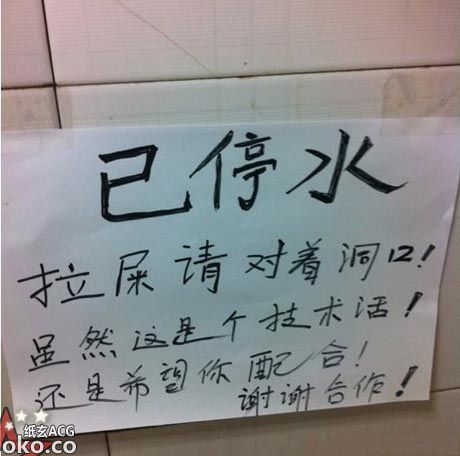 已停水
拉屎请对着洞口!
虽然这是个技术活!
还是希望你配合!
谢谢合作!
纸玄ACG
oko.co